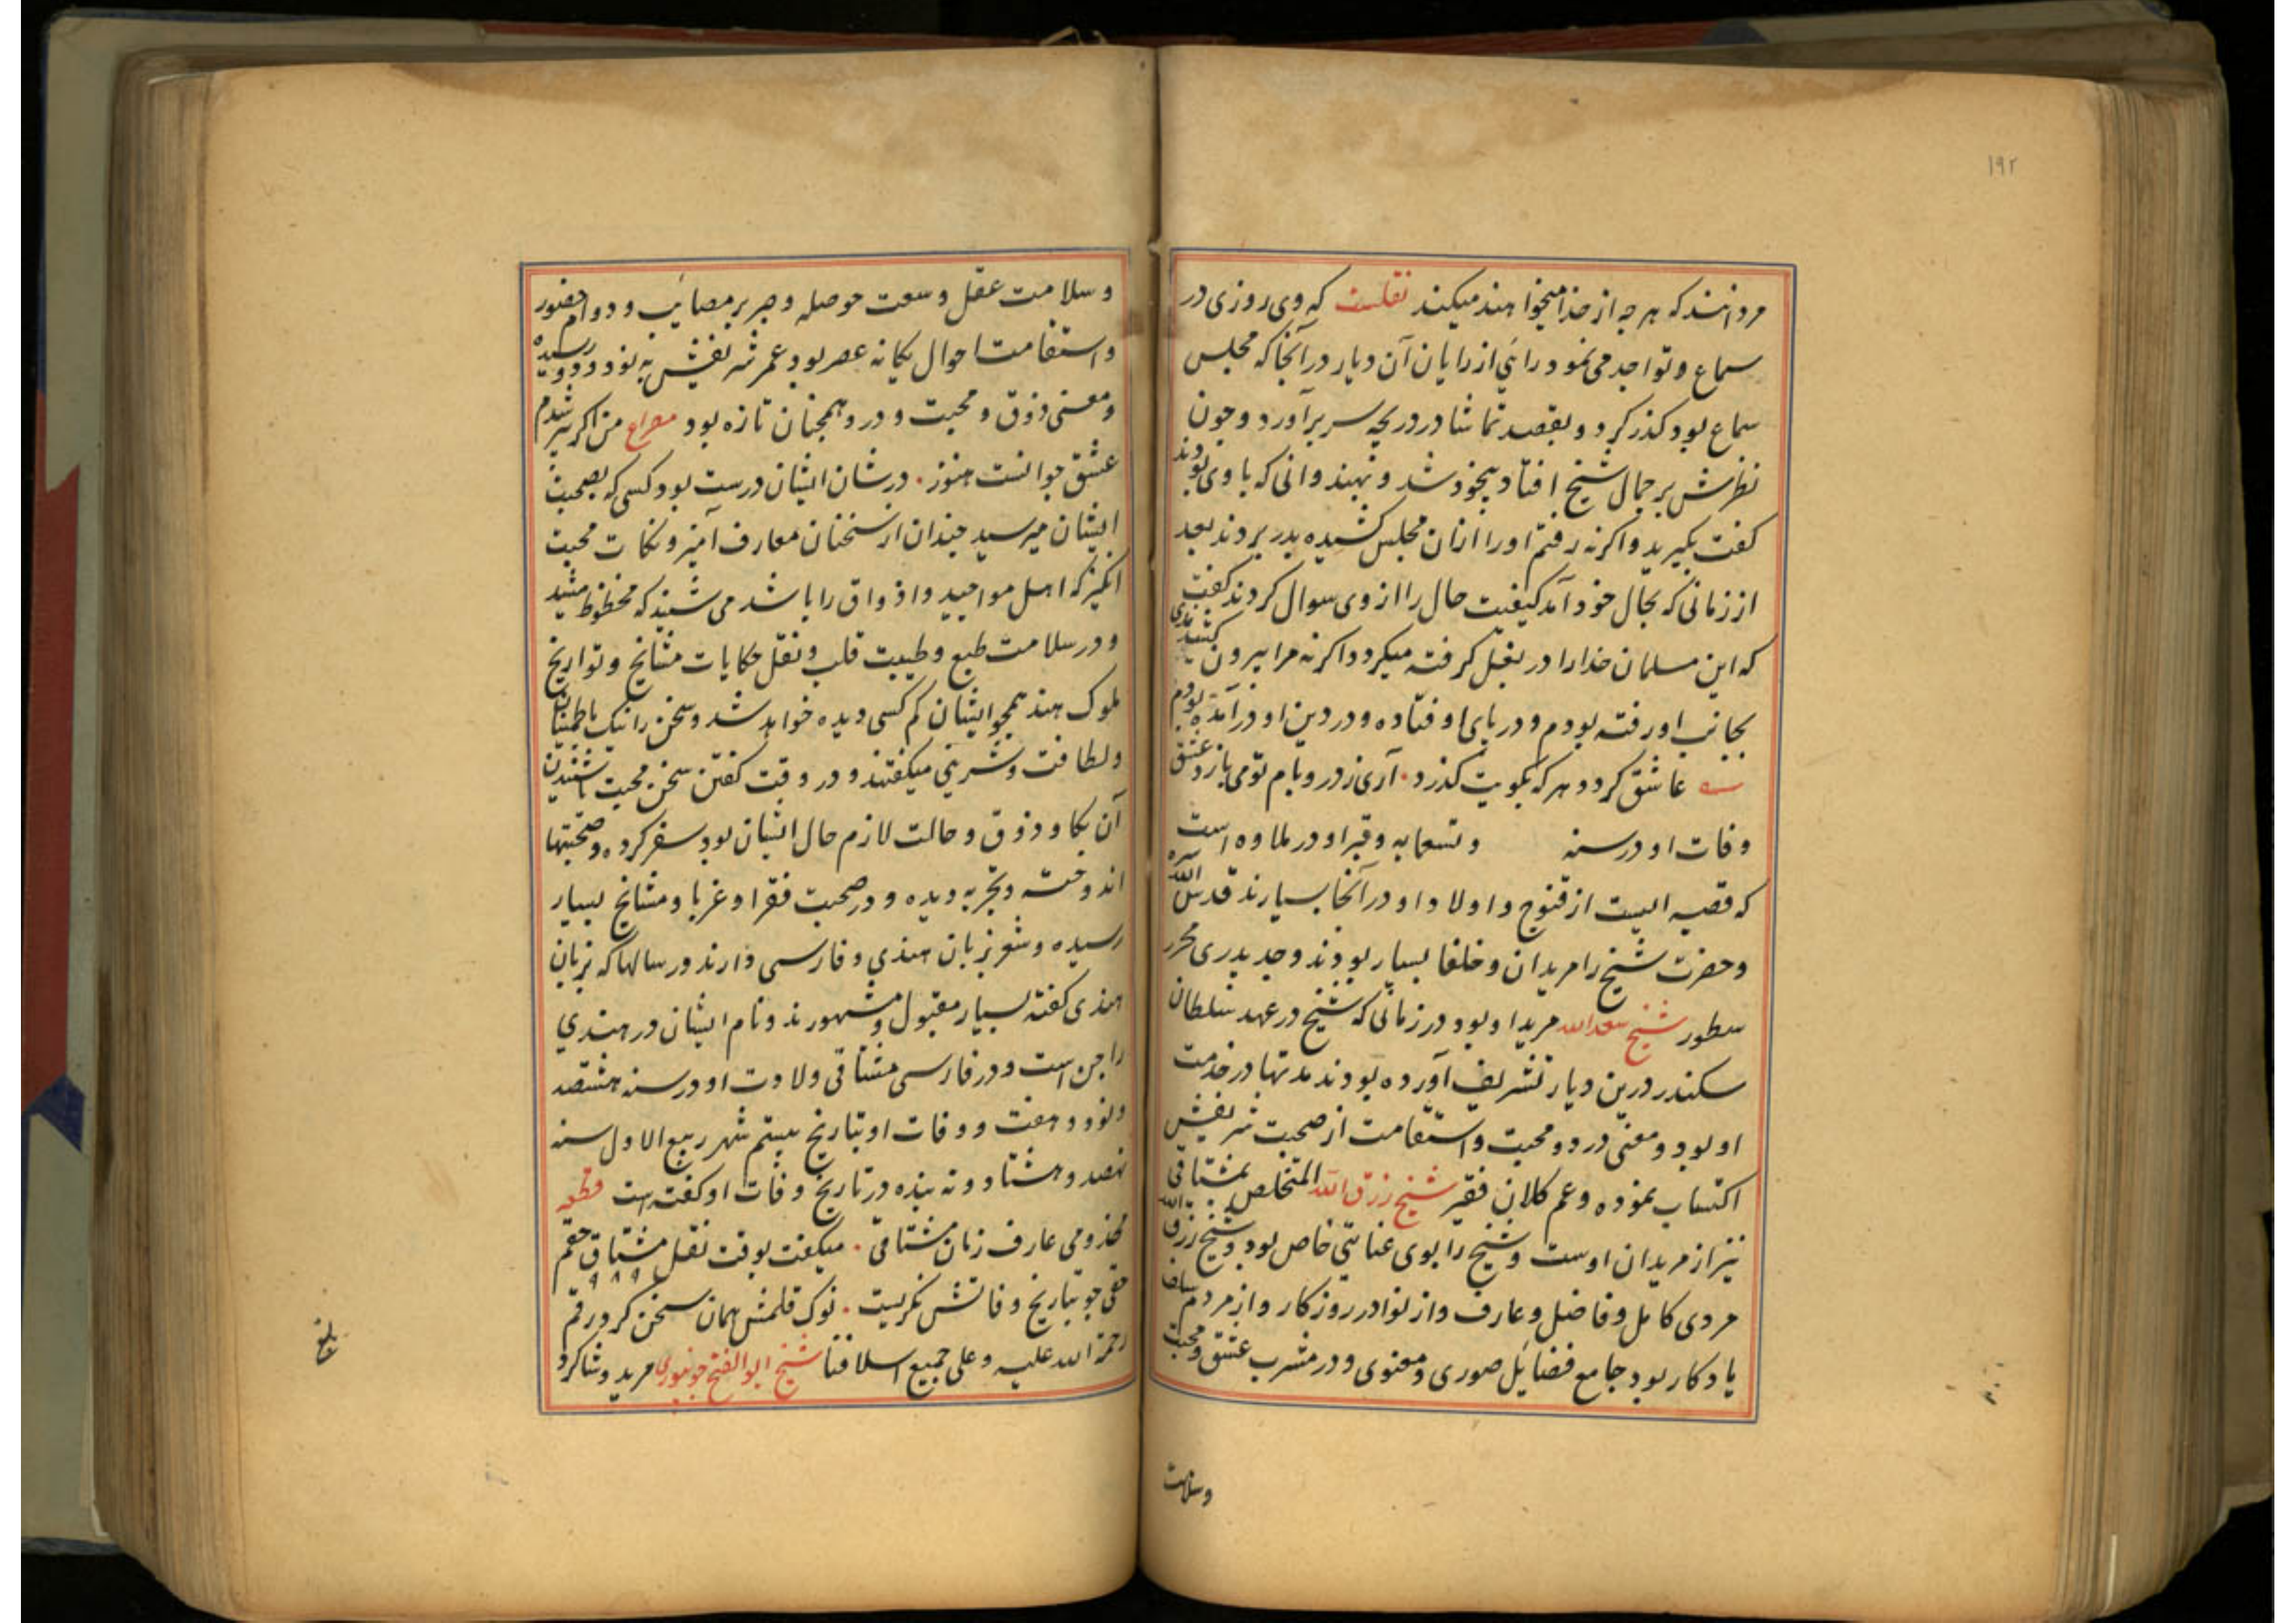 ۱۹۲
مردانند که هر چه از خدا میخواهند میکند نقلست که وی روزی در
سماع و تواجد می نمود رائی از رایان آن دیار در آنجا که مجلس
سماع بود کذر کرد و بقصد تماشا در دریچه سر برآورد و چون
نظرش بر جمال شیخ افتاد بیخود شد و بهندوانی که با وی بودند
کفت بکیرید واکرنه رفتم او را ازان مجلس کشیده بدر بردند بعد
از زمانی که بحال خود آمد کیفیت حال را از وی سوال کردند کفت
که این مسلمان خدا را در بغل کرفته میکردد اکرنه مرا بیرون کشیدندی
بجانب او رفته بودم و در پای او فتاده و در دین او درآمده بودم
عاشق کردد هر که بکویت کذرد۰ آری ز در و بام تو می بارد عشق
وفات او در سنه و تسعمایه و قبر او در ملاوه است
که قصبه ایست از قنوج و اولاد او در آنجا بسیارند قدس الله سره
و حضرت شیخ را مریدان و خلفا بسیار بودند و جد پدری محرر
سطور شیخ سعد الله مرید او بود در زمانی که شیخ در عهد سلطان
سکندر درین دیار تشریف آورده بودند مدتها در خدمت
او بود و معنی درد و محبت و استقامت از صحبت شریفش
اکتساب نموده و عم کلان فقیر شیخ رزق الله المتخلص بمشتاقی
نیز از مریدان اوست و شیخ را بوی عنایتی خاص بود و شیخ رزق الله
مردی کامل و فاضل و عارف و از نوادر روزکار و از مردم سلف
یادکار بود جامع فضایل صوری و معنوی و در مشرب عشق و محبت
وسلامت
و سلامت عقل و سعت حوصله و صبر بر مصائب و دوام حضور
و استقامت احوال یکانه عصر بود عمر شریفش به نود و دو رسیده
و معنی ذوق و محبت و درد همچنان تازه بود مصراع من اکر پیر شدم
عشق جوانست هنوز۰ در شان ایشان درست بود کسی که بصحبت
ایشان میرسید چندان از سخنان معارف آمیز و نکات محبت
انکیز که اهل مواجید و اذواق را باشد می شنید که محظوظ میشد
و در سلامت طبع و طیبت قلب و نقل حکایات مشایخ و تواریخ
ملوک هند همچو ایشان کم کسی دیده خواهد شد و سخن را نیک باطمینان
و لطافت و شیرینی میکفتند و در وقت کفتن سخن محبت یا شنیدن
آن بکا و ذوق و حالت لازم حال ایشان بود سفر کرده و صحبتها
اندوخته و تجربه دیده و در صحبت فقرا و غربا و مشایخ بسیار
رسیده و شعر بزبان هندی و فارسی دارند و رسالها که بزبان
هندی کفته بسیار مقبول و مشهورند و نام ایشان در هندی
راجن است و در فارسی مشتاقی ولادت او در سنه هشتصد
و نود و هفت و وفات او بتاریخ بیستم شهر ربیع الاول سنه
نهصد و هشتاد و نه بنده در تاریخ وفات او کفته است قطعه
مخدومی عارف زمان مشتاقی۰ میکفت بوقت نقل مشتاق حقم
۹۸۹
حقی چو بتاریخ وفاتش نکریست۰ نوک قلمش همان سخن کرد رقم
رحمة الله علیه و علی جمیع اسلافنا شیخ ابو الفتح جونپوری مرید و شاکرد
بلغ